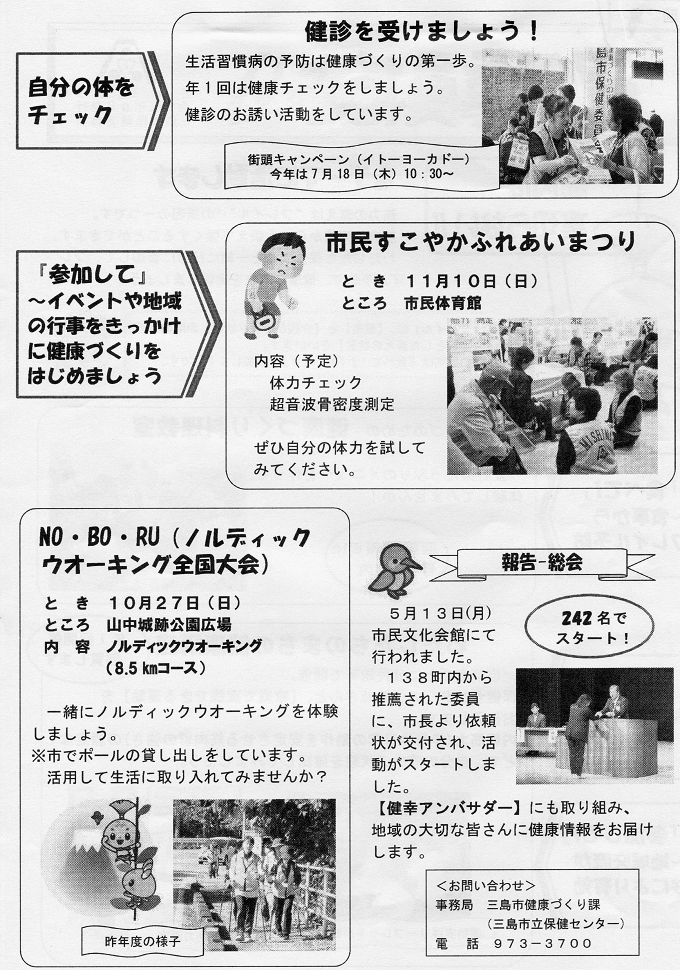 健診を受けましょう！
自分の体を
チェック
生活習慣病の予防は健康づくりの第一歩。
年１回は健康チェックをしましょう。
健診のお誘い活動をしています。
街頭キャンペーン（イトーヨーカドー）
今年は７月１８日（木）１０：３０～
島市保健委員会
『参加して』
～イベントや地域
の行事をきっかけ
に健康づくりを
はじめましょう
市民すこやかふれあいまつり
と　き　１１月１０日（日）
ところ　市民体育館
内容（予定）
体力チェック
超音波骨密度測定
ぜひ自分の体力を試して
みてください。
MISHIMA
NO・BO・RU（ノルディック
ウオーキング全国大会）
と　き　１０月２７日（日）
ところ　山中城跡公園広場
内　容　ノルディックウオーキング
（8.5㎞コース）
一緒にノルディックウオーキングを体験
しましょう。
※市でポールの貸し出しをしています。
活用して生活に取り入れてみませんか？
昨年度の様子
報告-総会
242名で
スタート！
５月１３日(月)
市民文化会館にて
行われました。
１３８町内から
推薦された委員
に、市長より依頼
状が交付され、活
動がスタートしま
した。
【健幸アンバサダー】にも取り組み、
地域の大切な皆さんに健康情報をお届け
します。
＜お問い合わせ＞
事務局　三島市健康づくり課
（三島市立保健センター）
電　話　９７３－３７００